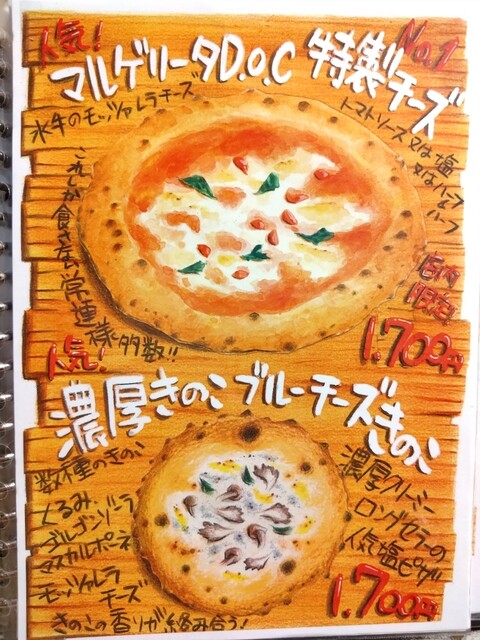 人気!
No.1
マルゲリータD.O.C 特製チーズ
水牛のモッツァレラチーズ
トマトソース又は塩
又はハーフ&ハーフ
これが食べたい常連様多数!!
店内
限定
1.700円
人気!
濃厚きのこブルーチーズきのこ
数種のきのこ
くるみ
ゴルゴンゾーラ
マスカルポーネ
モッツァレラ
チーズ
きのこの香りが絡み合う!
濃厚クリーミー
ロングセラーの
人気塩ピザ
1.700円